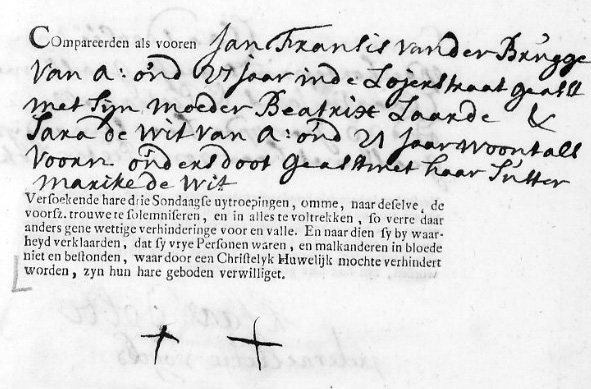 Compareerden als vooren Jan Fransis van der Brugge
van A: oud 27 jaar in de Lojerstraat geasst
met Sijn moeder Beatrix Laarde &
Sara de Wit van A: oud 21 jaar woont als
voorn ouders doot geasst met haar Suster
Marike de Wit
Versoekende hare drie Sondaagse uytroepingen, omme, naar deselve, de
voorsz. trouwe te solemniseren, en in alles te voltrekken, so verre daar
anders gene wettige verhinderinge voor en valle. En naar dien sy by waar-
heyd verklaarden, dat sy vrye Personen waren, en malkanderen in bloede
niet en bestonden, waar door een Christelyk Huwelijk mochte verhindert
worden, zyn hun hare geboden verwilliget.